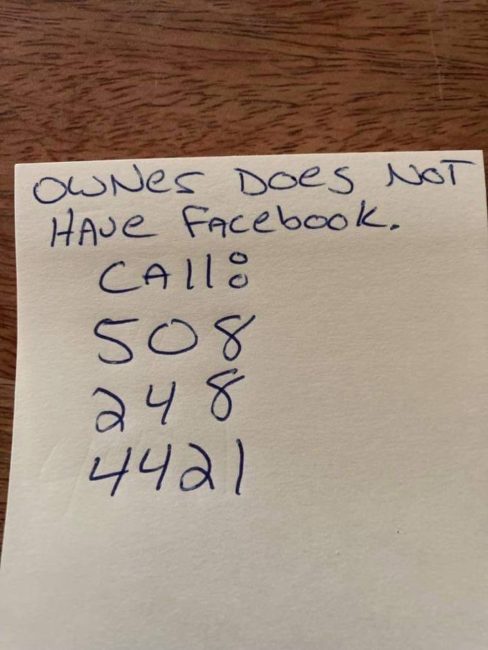 OWNer DOes NOT
HAve FAcebook.
CAll:
508
248
4421